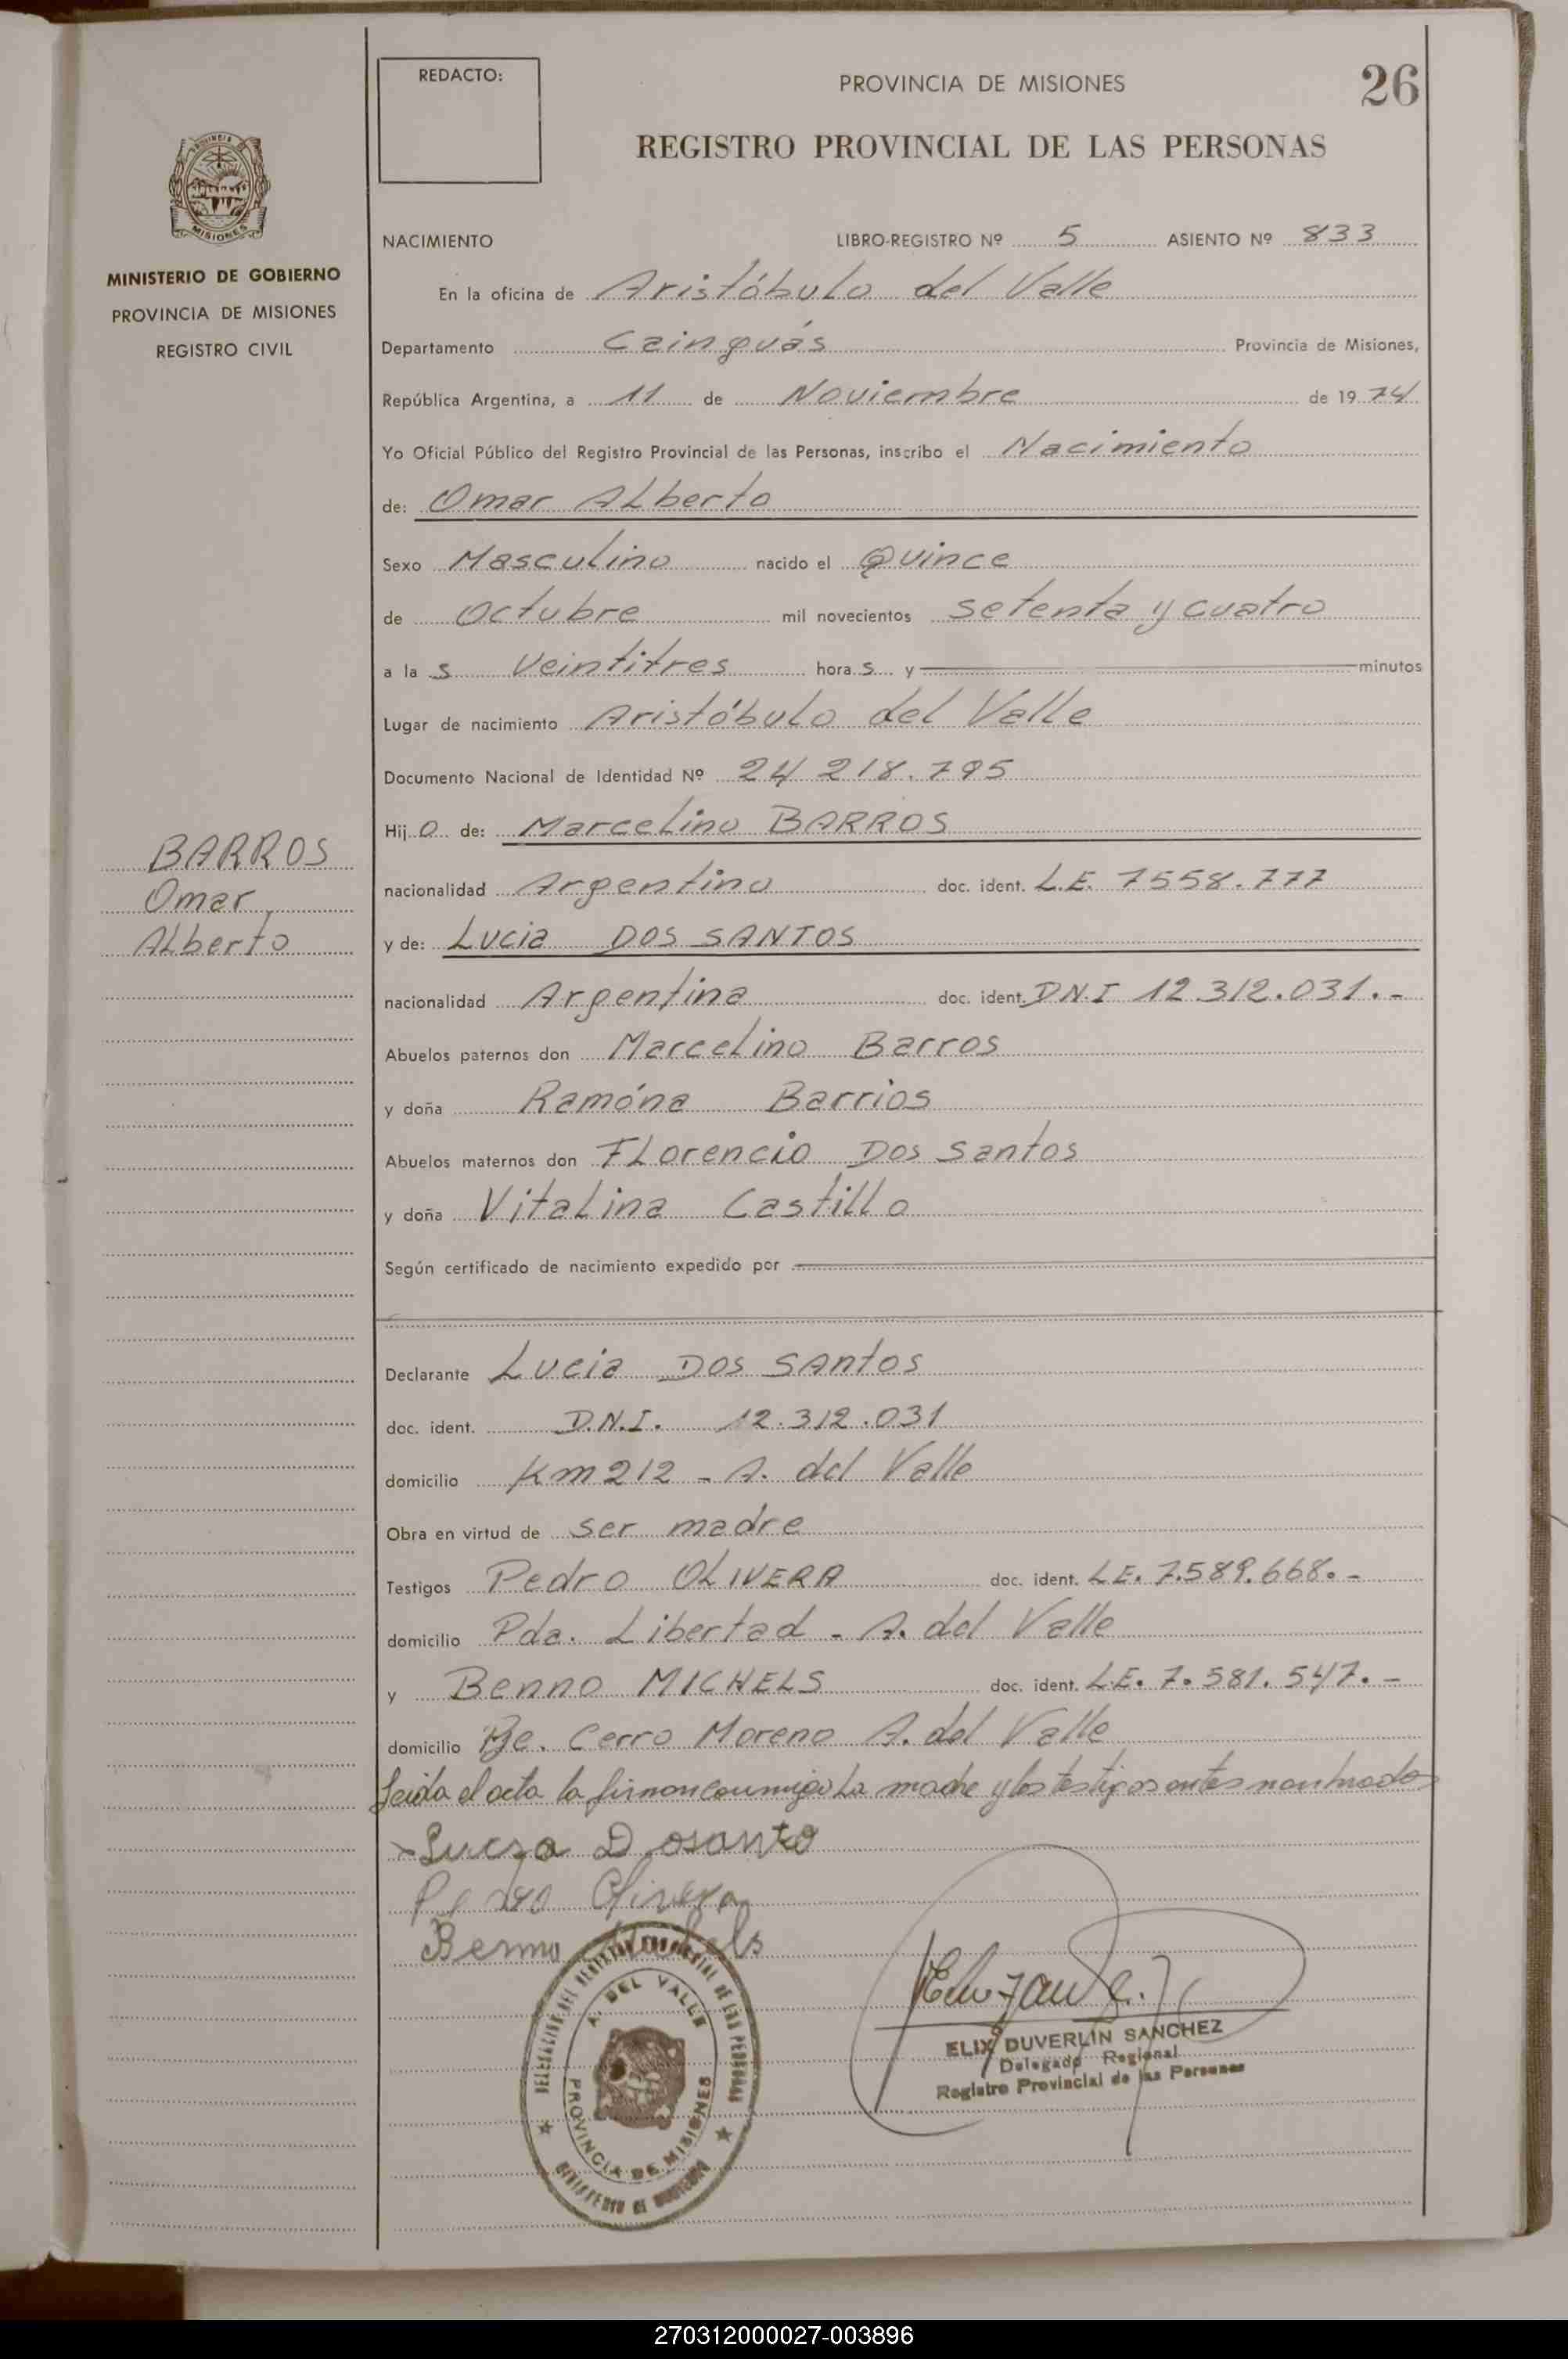 REDACTO:
PROVINCIA DE MISIONES
26
REGISTRO PROVINCIAL DE LAS PERSONAS
PROVINCIA
MISIONES
MINISTERIO DE GOBIERNO
PROVINCIA DE MISIONES
REGISTRO CIVIL
BARROS
Omar
Alberto
NACIMIENTO LIBRO-REGISTRO Nº 5 ASIENTO Nº 833
En la oficina de Aristóbulo del Valle
Departamento Cainguás Provincia de Misiones,
República Argentina, a 11 de Noviembre de 19 74
Yo Oficial Público del Registro Provincial de las Personas, inscribo el Nacimiento
de: Omar Alberto
Sexo Masculino nacido el Quince
de Octubre mil novecientos setenta y cuatro
a la s veintitres hora s y minutos
Lugar de nacimiento Aristóbulo del Valle
Documento Nacional de Identidad Nº 24 218.795
Hij o de: Marcelino BARROS
nacionalidad Argentino doc. ident. L.E. 7558.777
y de: Lucia DOS SANTOS
nacionalidad Argentina doc. ident. D.N.I 12.312.031.-
Abuelos paternos don Marcelino Barros
y doña Ramóna Barrios
Abuelos maternos don Florencio Dos Santos
y doña Vitalina Castillo
Según certificado de nacimiento expedido por
Declarante Lucia Dos Santos
doc. ident. D.N.I. 12.312.031
domicilio Km 212 - A. del Valle
Obra en virtud de ser madre
Testigos Pedro OLIVERA doc. ident. L.E. 7.589.668.-
domicilio Pda. Libertad - A. del Valle
y Benno MICHELS doc. ident. L.E. 7.581.547.-
domicilio Cerro Moreno A. del Valle
Leida el acta la firman conmigo la madre y los testigos antes nombrados
Lucia Dosanto
Pedro Olivera
Benno Michels
DELEGACION DEL REGISTRO PROVINCIAL DE LAS PERSONAS
A. DEL VALLE
PROVINCIA DE MISIONES
MINISTERIO DE GOBIERNO
ELIX DUVERLIN SANCHEZ
Delegado Regional
Registro Provincial de las Personas
270312000027-003896